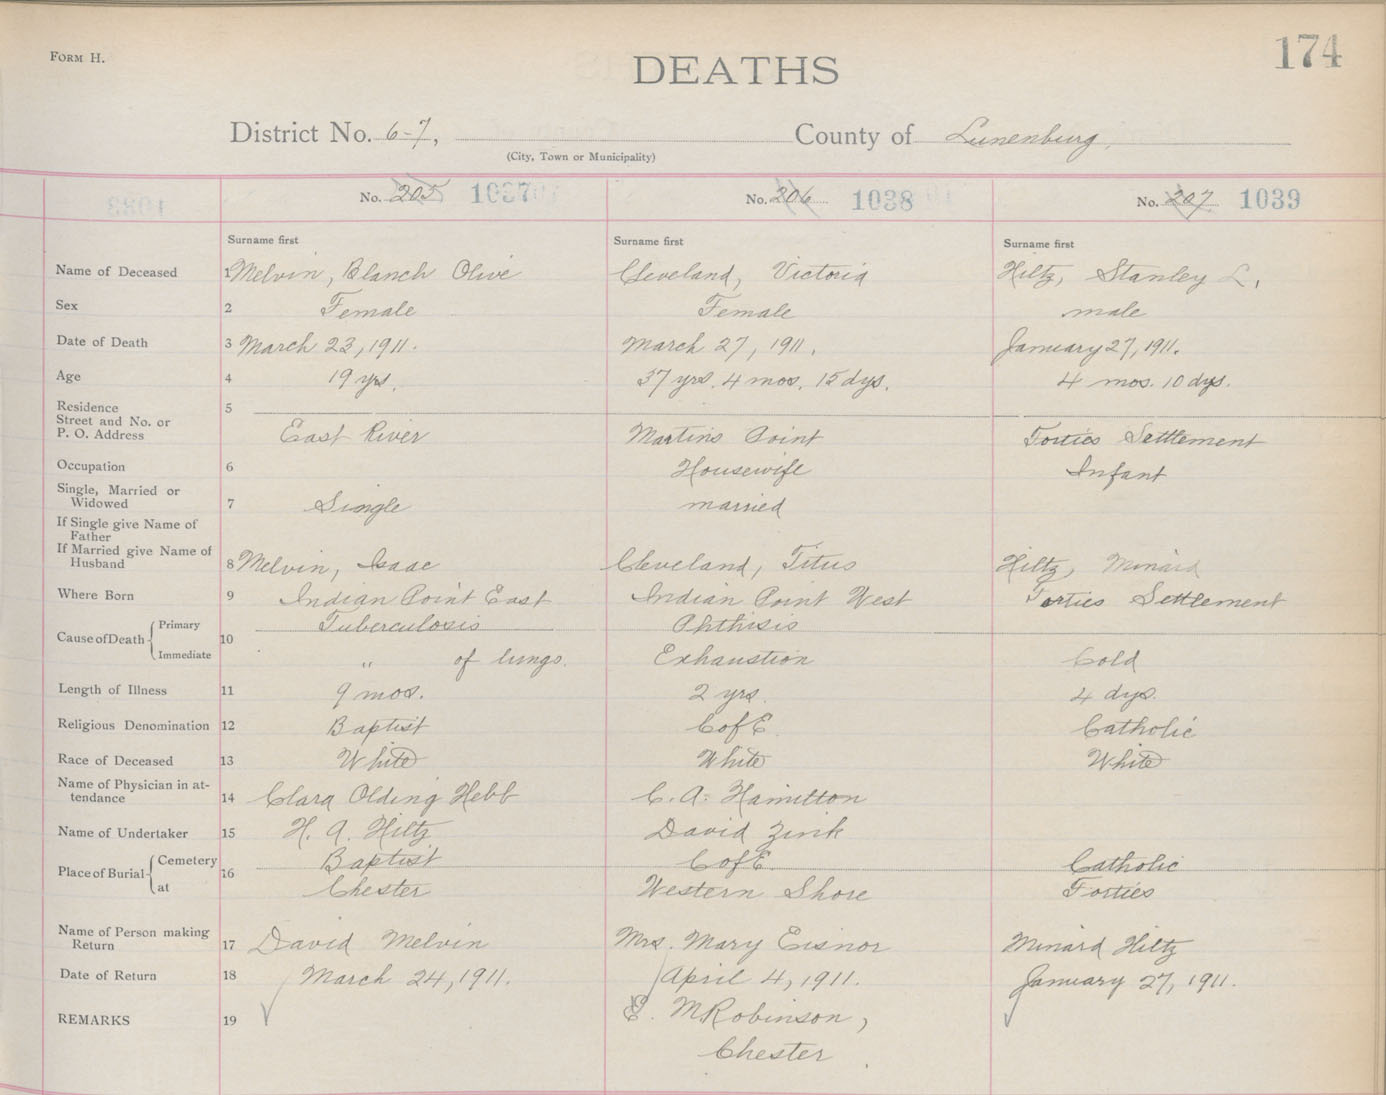 FORM H.
174
DEATHS
District No. 6-7, County of Lunenburg,
(City, Town or Municipality)
No. 205 1037 No. 206 1038 No. 207 1039
Surname first Surname first Surname first
Name of Deceased 1 Melvin, Blanch Olive Cleveland, Victoria Hiltz, Stanley L.
Sex 2 Female Female male
Date of Death 3 March 23, 1911. March 27, 1911. January 27, 1911.
Age 4 19 yrs. 37 yrs. 4 mos. 15 dys. 4 mos. 10 dys.
Residence 5
Street and No. or
P. O. Address East River Martins Point Forties Settlement
Occupation 6 Housewife Infant
Single, Married or
Widowed 7 Single married
If Single give Name of
Father
If Married give Name of
Husband 8 Melvin, Isaac Cleveland, Titus Hiltz, Minard
Where Born 9 Indian Point East Indian Point West Forties Settlement
Cause of Death 10 Primary Tuberculosis Phthisis
Immediate " of lungs. Exhaustion Cold
Length of Illness 11 9 mos. 2 yrs. 4 dys.
Religious Denomination 12 Baptist C of E. Catholic
Race of Deceased 13 White White White
Name of Physician in at-
tendance 14 Clara Olding Hebb C. A. Hamilton
Name of Undertaker 15 H. A. Hiltz David Zink
Place of Burial 16 Cemetery Baptist C of E. Catholic
at Chester Western Shore Forties
Name of Person making
Return 17 David Melvin Mrs. Mary Eisnor Minard Hiltz
Date of Return 18 March 24, 1911. April 4, 1911. January 27, 1911.
REMARKS 19 E. M. Robinson,
Chester